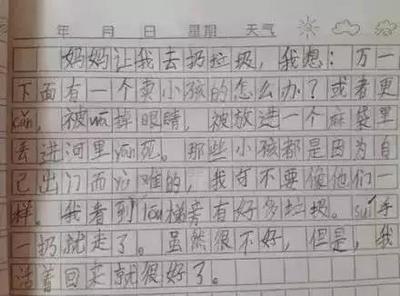 年 月 日 星期 天气
妈妈让我去扔垃圾,我想:万一
下面有一个卖小孩的怎么办?或者更
cǎn,被wā掉眼睛,被放进一个麻袋里
丢进河里yān死。那些小孩都是因为自
己出门而yù难的,我才不要像他们一
样。我看到lóu梯旁有好多垃圾。suí手
一扔就走了。虽然很不好,但是,我
活着回来就很好了。